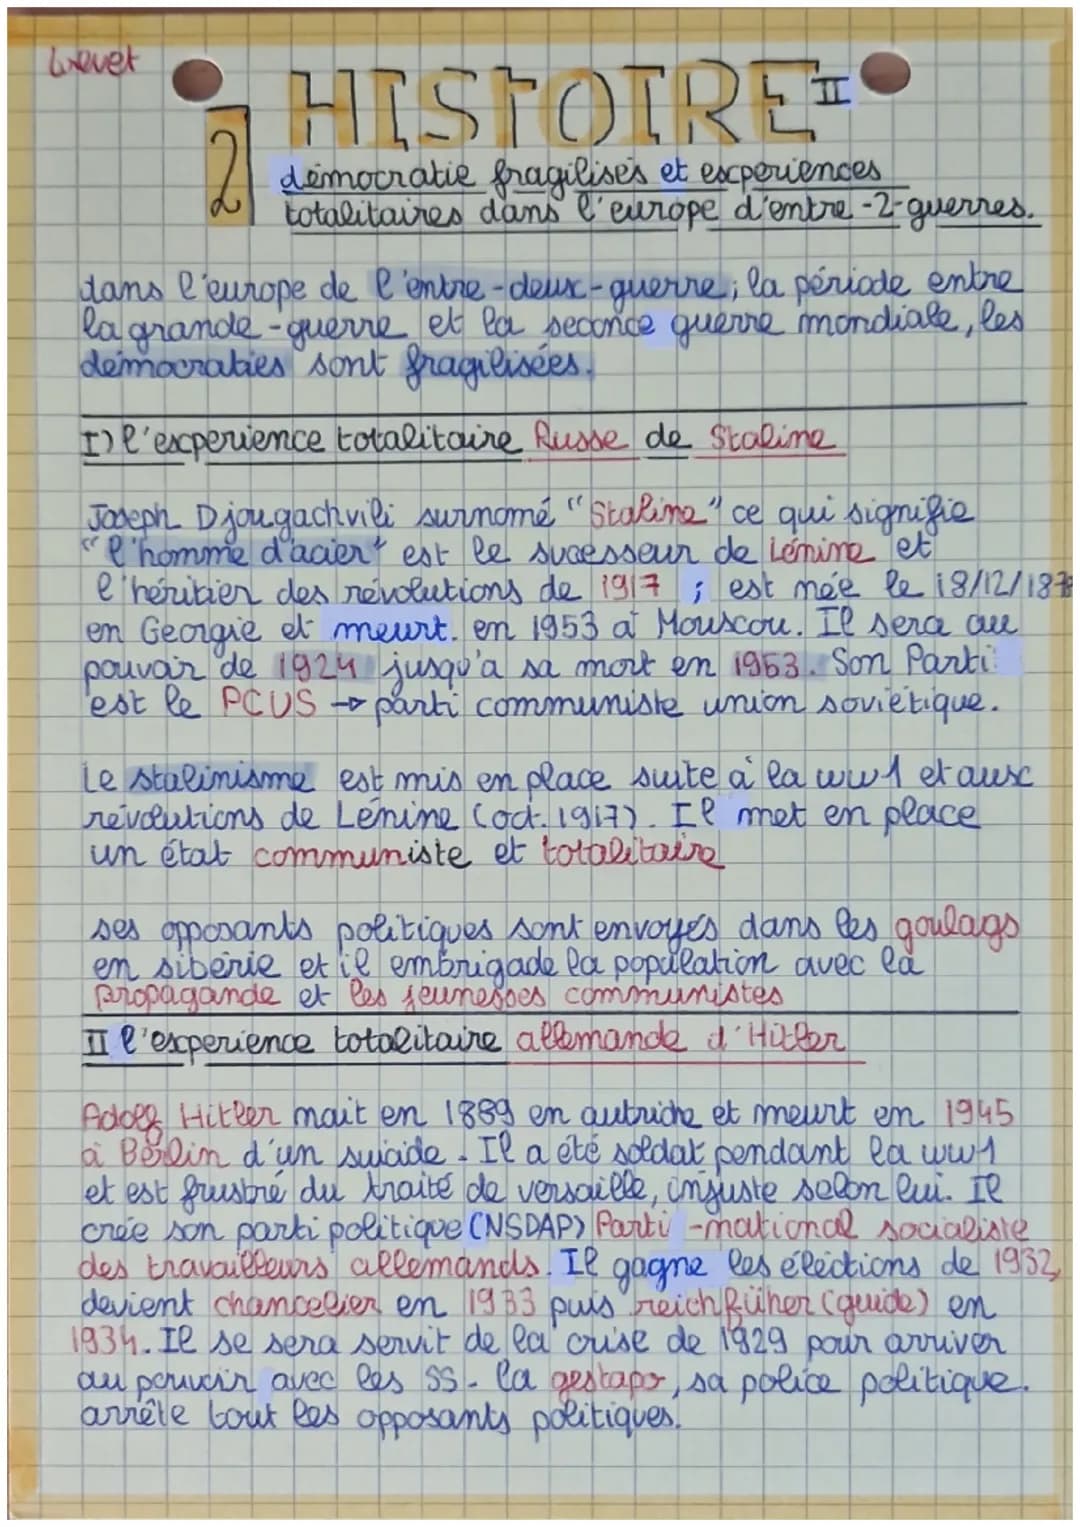 brevet
HISTOIRE II
2
démocratie fragilisés et experiences
totalitaires dans l'europe d'entre-2-guerres.
dans l'europe de l'entre-deux-guerre; la période entre
la grande-guerre et la seconce guerre mondiale, les
démocraties sont fragilisées.
I) l'experience totalitaire Russe de Staline
Joseph Djougachvili surnomé "Staline" ce qui signifie
"l'homme d'acier" est le sucesseur de Lénine et
l'héritier des révolutions de 1917 ; est née le 18/12/1878
en Georgie et meurt. en 1953 à Mouscou. Il sera au
pouvoir de 1924 jusqu'a sa mort en 1953. Son Parti
est le PCUS → parti communiste union soviétique.
Le stalinisme est mis en place suite à la ww1 et aux
révolutions de Lénine (oct. 1917). Il met en place
un état communiste et totalitaire
ses opposants politiques sont envoyés dans les goulags
en sibérie et il embrigade la population avec la
propagande et les jeunesses communistes
II l'experience totalitaire allemande d'Hitler
Adolf Hitler nait en 1889 en autriche et meurt en 1945
à Berlin d'un suicide. Il a été soldat pendant la ww1
et est frustré du traité de versaille, injuste selon lui. Il
crée son parti politique (NSDAP) Parti-national socialiste
des travailleurs allemands. Il gagne les éléctions de 1932,
devient chancelier en 1933 puis reichfüher (guide) en
1934. Il se sera servit de la crise de 1929 pour arriver
au pouvoir avec les SS. la gestapo, sa police politique.
arrête tout les opposants politiques.